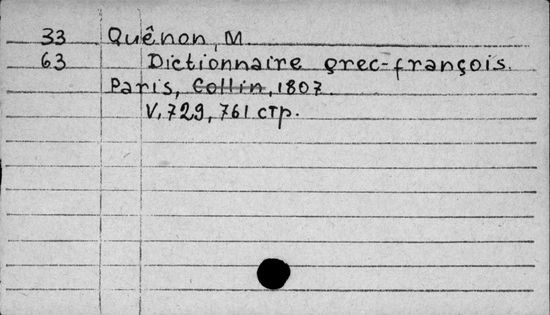 33 Quênon, M
63 Dictionnaire grec-françois.
Paris, Collin, 1807.
V, 729, 761 стр.